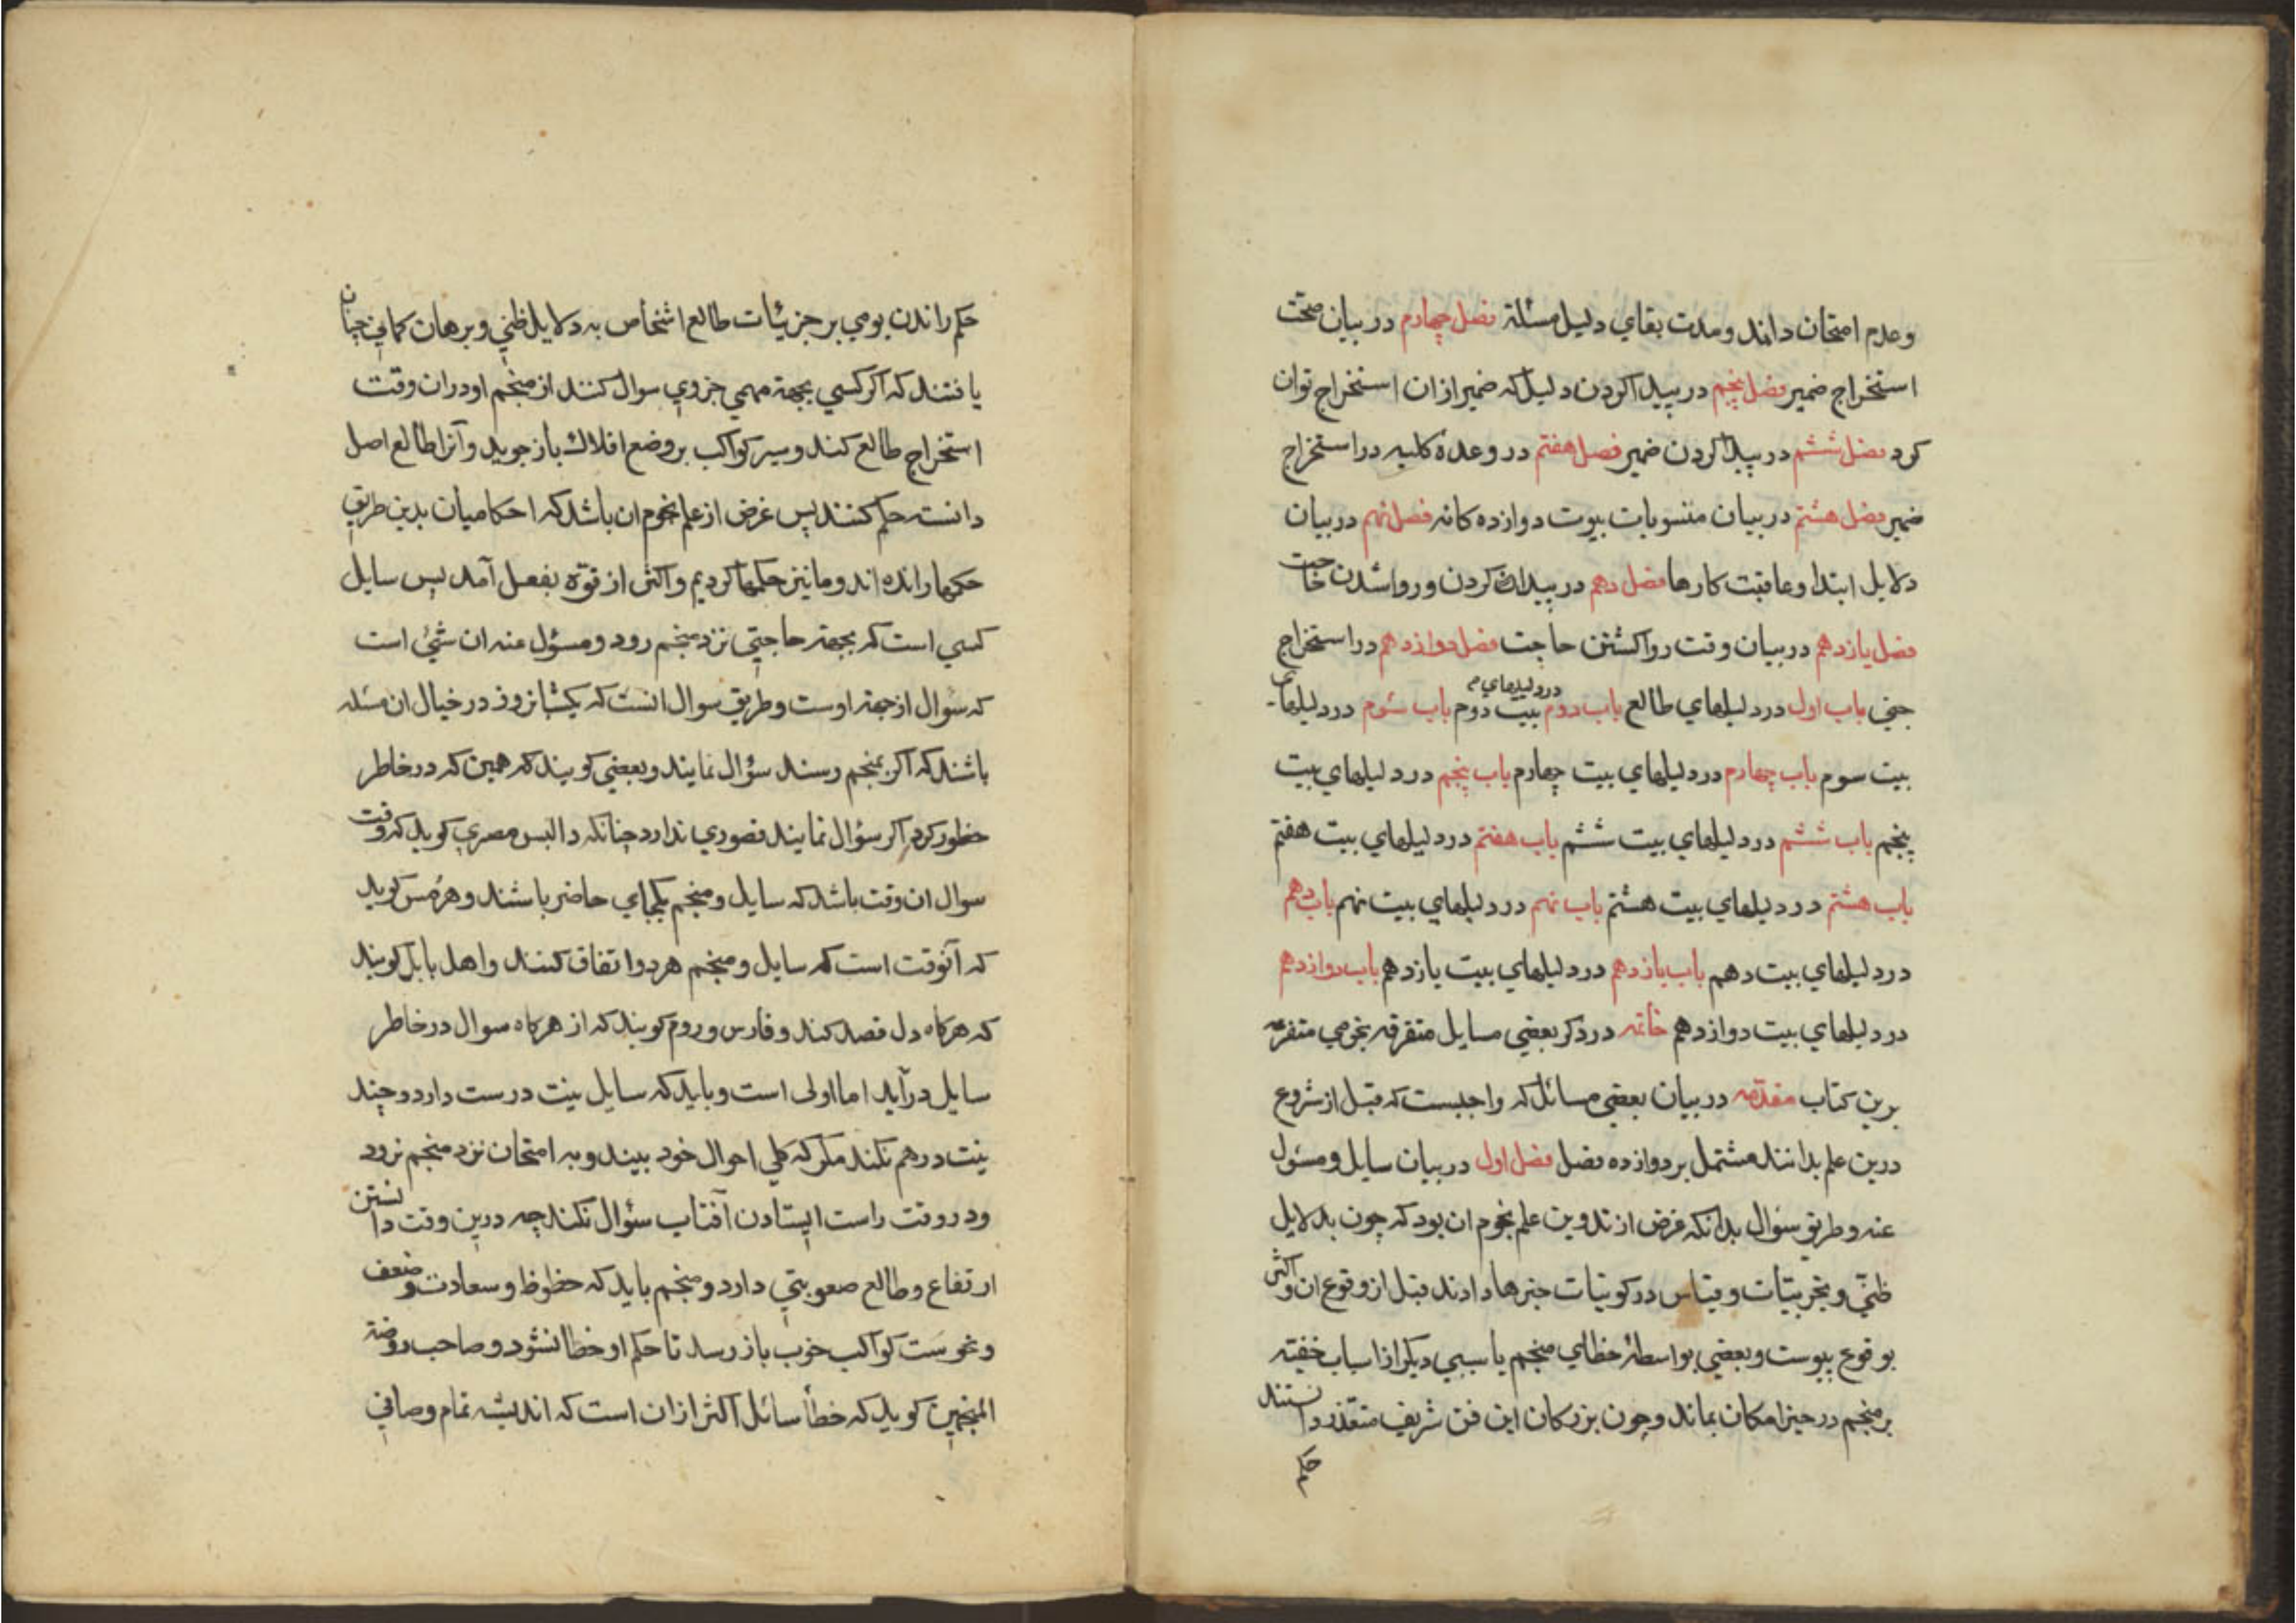 وعدم امتحان دانند ومدت بقاي دليل مسئلة فصل چهارم در بيان صحت
استخراج ضمير فصل پنجم در پيدا كردن دليل كه ضمير ازان استخراج توان
كرد فصل ششم در پيدا كردن ضمير فصل هفتم در وعده كليه در استخراج
ضمير فصل هشتم در بيان منسوبات بيوت دوازده كانه فصل نهم در بيان
دلايل ابتدا وعاقبت كارها فصل دهم در پيدا كردن وروا شدن حاجت
فصل يازدهم در بيان وقت روا كشتن حاجت فصل دوازدهم در استخراج
باب اول در دليلهاي طالع باب دوم در دليلهاي بيت دوم باب سوم در دليلهاي
بيت سوم باب چهارم در دليلهاي بيت چهارم باب پنجم در دليلهاي بيت
پنجم باب ششم در دليلهاي بيت ششم باب هفتم در دليلهاي بيت هفتم
باب هشتم در دليلهاي بيت هشتم باب نهم در دليلهاي بيت نهم باب دهم
در دليلهاي بيت دهم باب يازدهم در دليلهاي بيت يازدهم باب دوازدهم
در دليلهاي بيت دوازدهم خاتمه در ذكر بعضي مسايل متفرقه نجومي متفرعه
برين كتاب مقدّمه در بيان بعضي مسائل كه واجبست كه قبل از شروع
درين علم بدانند مشتمل بر دوازده فصل فصل اول در بيان سايل ومسئول
عنه وطريق سؤال بدانكه غرض از تدوين علم نجوم ان بود كه چون بدلايل
ظنّي وتجربيّات وقياس در كونيات خبرها دادند قبل از وقوع ان واكثر
بوقوع پيوست وبعضي بواسطۀ خطاي منجم يا سببي ديكر از اسباب خفيّه
بر منجم در حيز امكان بماند وچون بزركان اين فن شريف متعذر دانستند
حكم
حكم راندن بومي بر جزئيات طالع اشخاص به دلايل ظني وبرهان كماهي چنان
يافتند كه اكر كسي بجهة مهمي جزوي سوال كند از منجم او در ان وقت
استخراج طالع كند وسير كواكب بر وضع افلاك باز جويد وآنرا طالع اصل
دانسته حكم كنند پس غرض از علم نجوم ان باشد كه احكاميان بدين طريق
حكمها رانده اند وما نيز حكمها كرديم واكثر از قوّة بفعل آمد پس سايل
كسي است كه بجهة حاجتي نزد منجم رود ومسؤل عنه ان شئ است
كه سؤال از جهة اوست وطريق سوال انست كه يكشبانروز در خيال ان مسئله
باشند كه اكر بمنجم رسند سؤال نمايند وبعضي كويند كه همين كه در خاطر
خطور كرد اكر سؤال نمايند قصوري ندارد چنانكه والیس مصري كويد كه وقت
سوال ان وقت باشد كه سايل ومنجم بيكجاي حاضر باشند وهرمس كويد
كه آنوقت است كه سايل ومنجم هر دو اتفاق كنند واهل بابل كويند
كه هركاه دل قصد كند وفارس وروم كويند كه از هركاه سوال در خاطر
سايل درآيد اما اولى است وبايد كه سايل نيت درست دارد وچند
نيت درهم نكند مكر كه كلي احوال خود بيند وبه امتحان نزد منجم نرود
ودر وقت راست ايستادن آفتاب سؤال نكند چه درين وقت دانستن
ارتفاع وطالع صعوبتي دارد ومنجم بايد كه حظوظ وسعادت وضعف
ونحوست كواكب خوب باز رسد تا حكم او خطا نشود وصاحب روضة
المنجمين كويد كه خطأ سائل اكثر ازان است كه انديشه تمام وصافي